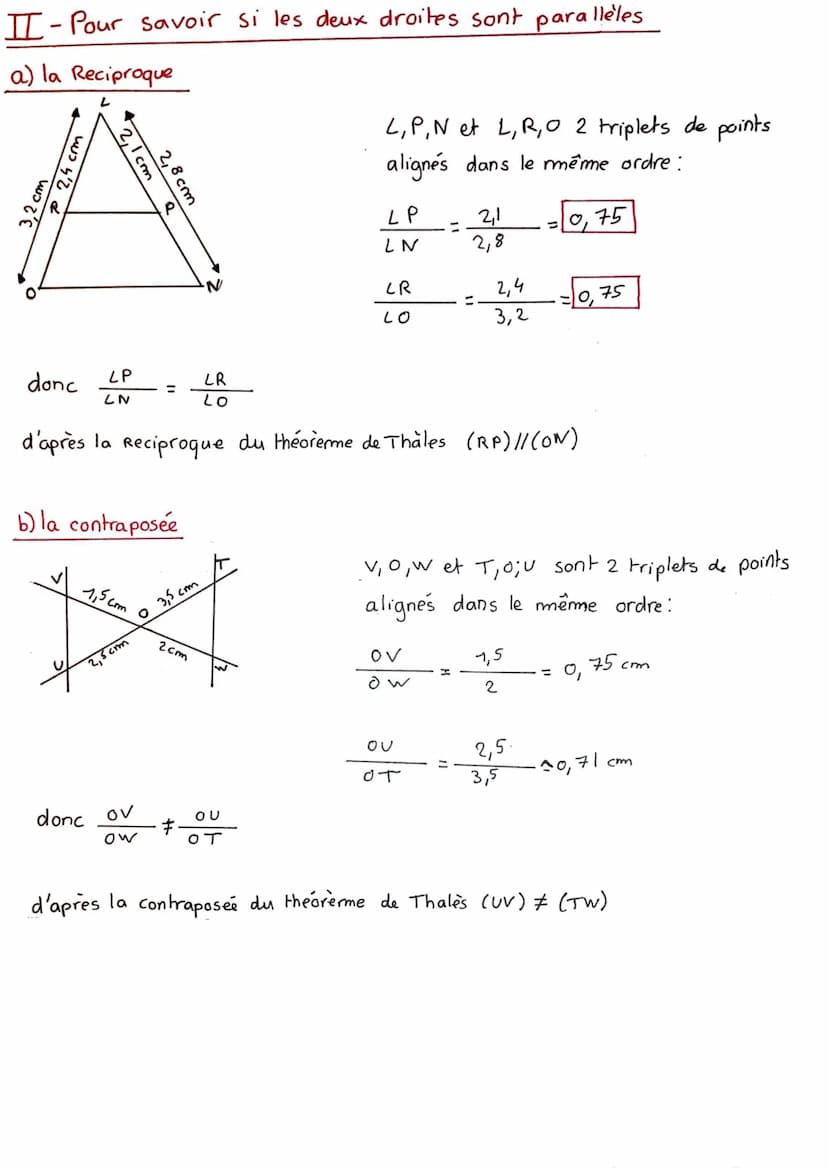 II - Pour savoir si les deux droites sont parallèles
a) la Reciproque
L
3,2 cm
2,4 cm
2,1 cm
2,8 cm
R
P
O
N
L,P,N et L,R,O 2 triplets de points
alignés dans le même ordre :
LP/LN = 2,1/2,8 = 0,75
LR/LO = 2,4/3,2 = 0,75
donc LP/LN = LR/LO
d'après la Reciproque du théorème de Thàles (RP)//(ON)
b) la contraposée
V
T
1,5 cm
O
3,5 cm
U
2,5 cm
2cm
W
V,O,W et T,O;U sont 2 triplets de points
alignés dans le même ordre :
OV/OW = 1,5/2 = 0,75 cm
OU/OT = 2,5/3,5 ≃ 0,71 cm
donc OV/OW ≠ OU/OT
d'après la contraposeé du théorème de Thalès (UV) ≠ (TW)